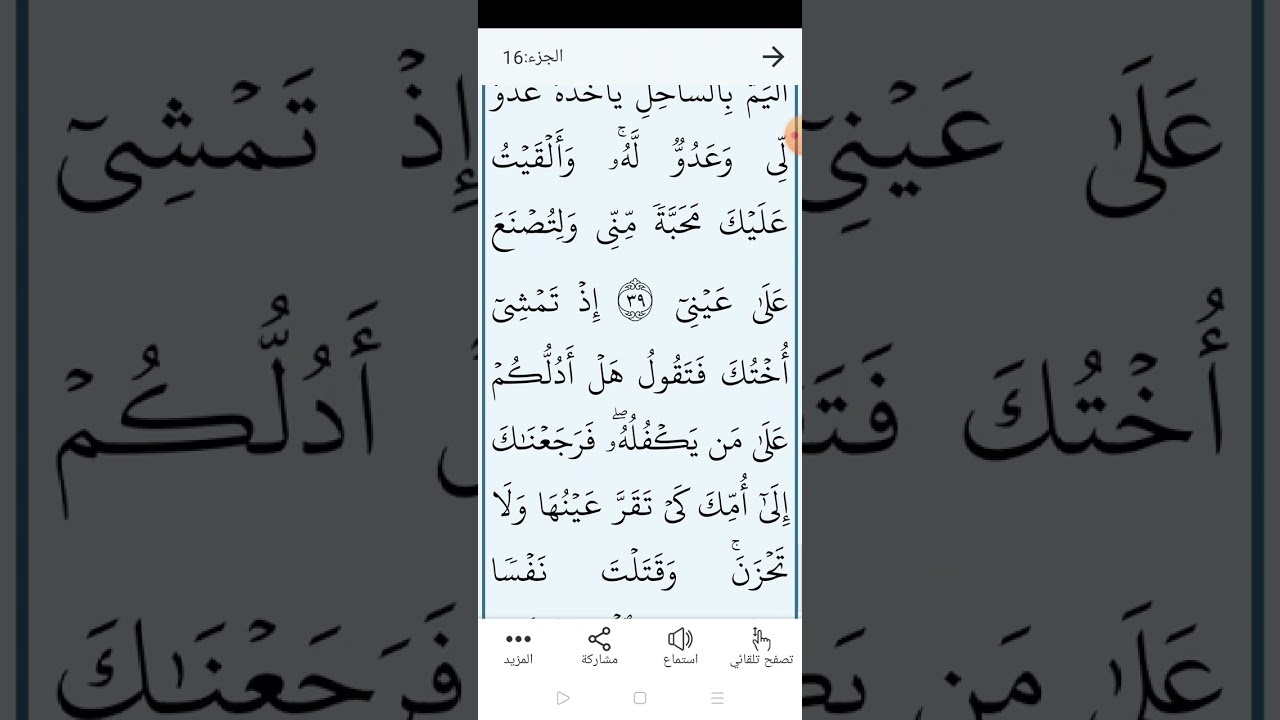 الجزء:16
اليم بالساحل يأخذه عدو
لِّى وَعَدُوٌّ لَّهُۥۚ وَأَلْقَيْتُ
عَلَيْكَ مَحَبَّةً مِّنِّى وَلِتُصْنَعَ
عَلَىٰ عَيْنِىٓ ٣٩ إِذْ تَمْشِىٓ
أُخْتُكَ فَتَقُولُ هَلْ أَدُلُّكُمْ
عَلَىٰ مَن يَكْفُلُهُۥۖ فَرَجَعْنَـٰكَ
إِلَىٰٓ أُمِّكَ كَىْ تَقَرَّ عَيْنُهَا وَلَا
تَحْزَنَۚ وَقَتَلْتَ نَفْسًا
تصفح تلقائي
استماع
مشاركة
المزيد